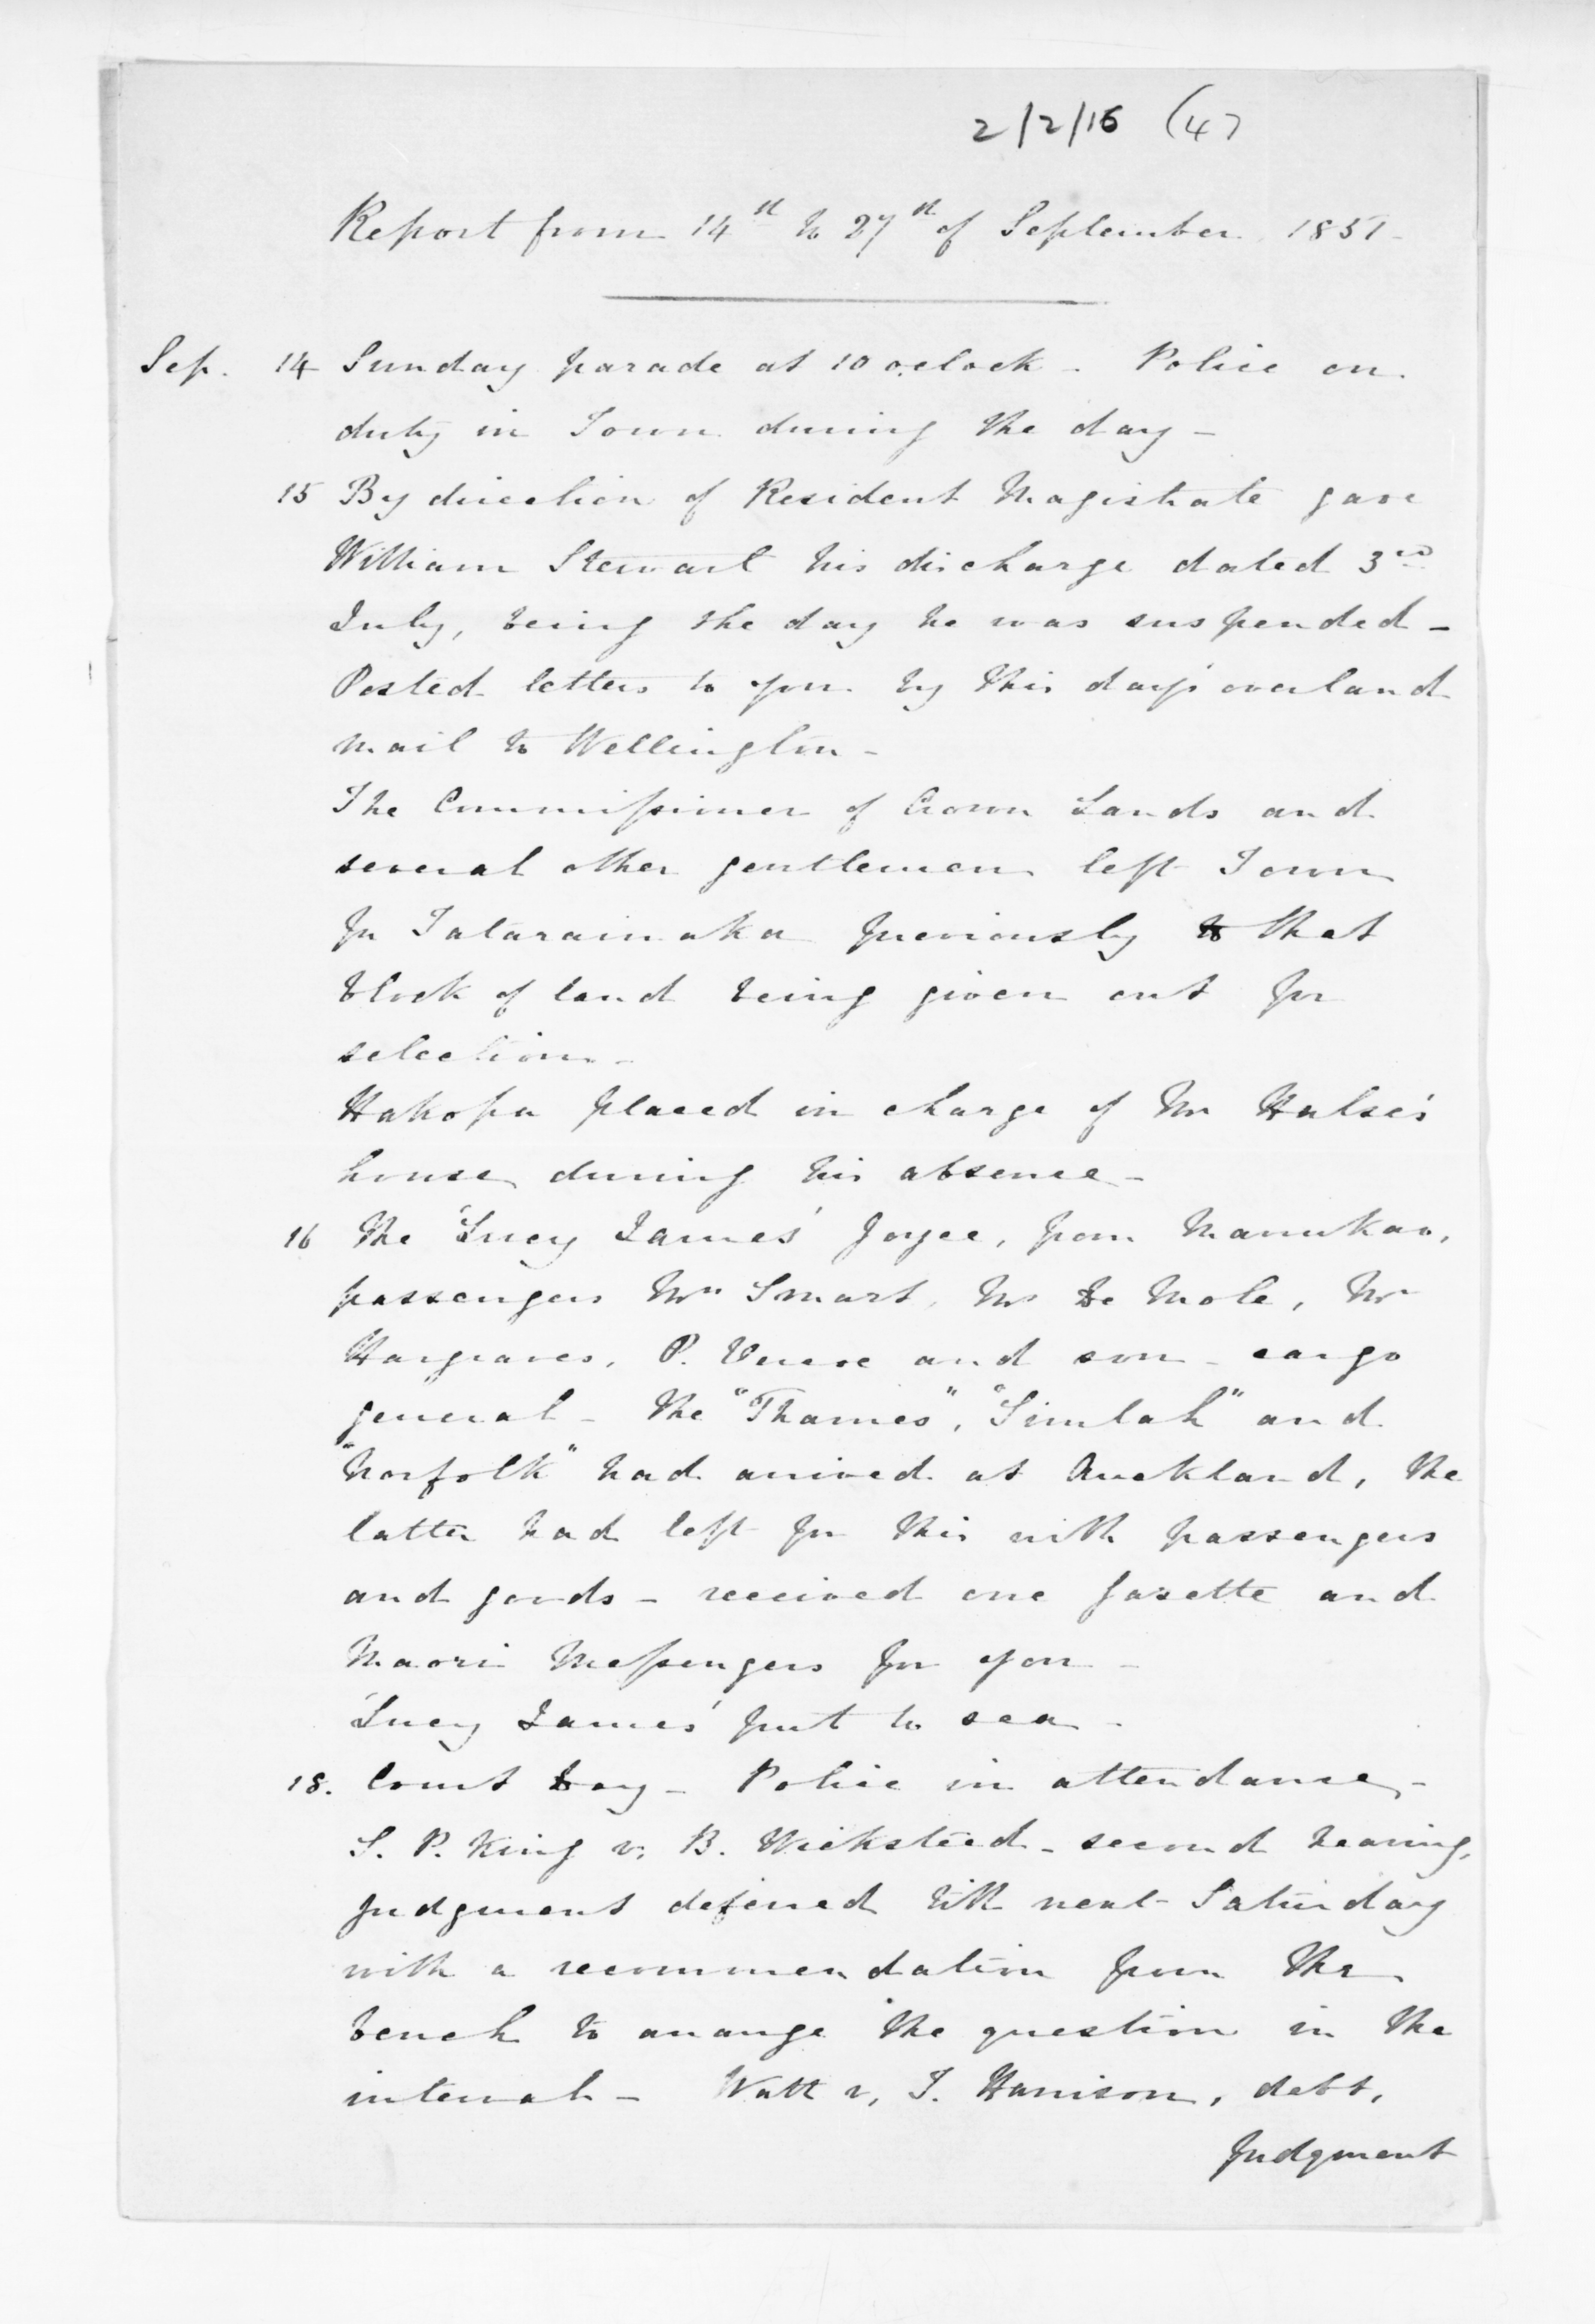 2/2/16 (4)
Report from 14th to 27th of September 1851-
Sep. 14 Sunday parade at 10 oclock - Police on
duty in Town during the day -
15 By direction of Resident Magistrate gave
William Stewart his discharge dated 3rd
July, being the day he was suspended -
Posted letters to you by this day's overland
mail to Wellington -
The Commissioner of Crown Lands and
several other gentlemen left Town
for Tataraimaka previously to that
block of land being given out for
selection -
Hakopa placed in charge of Mr Halse's
house during his absence -
16 The 'Lucy James' Joyce, from Manukao,
passengers Mrs Smart, Mr De Mole, Mr
Hargraves, P. and son - cargo
general - The "Thames", "Simlah" and
"Norfolk" had arrived at Auckland, the
latter had left for this with passengers
and goods - received one gazette and
Maori Messengers for you -
'Lucy James' put to sea -
18. Court Day - Police in attendance -
S. P. King v. B. Wicksteed - second hearing,
judgment deferred till next Saturday
with a recommendation from the
bench to arrange the question in the
interval - Watt v, T. Harrison, debt,
Judgment